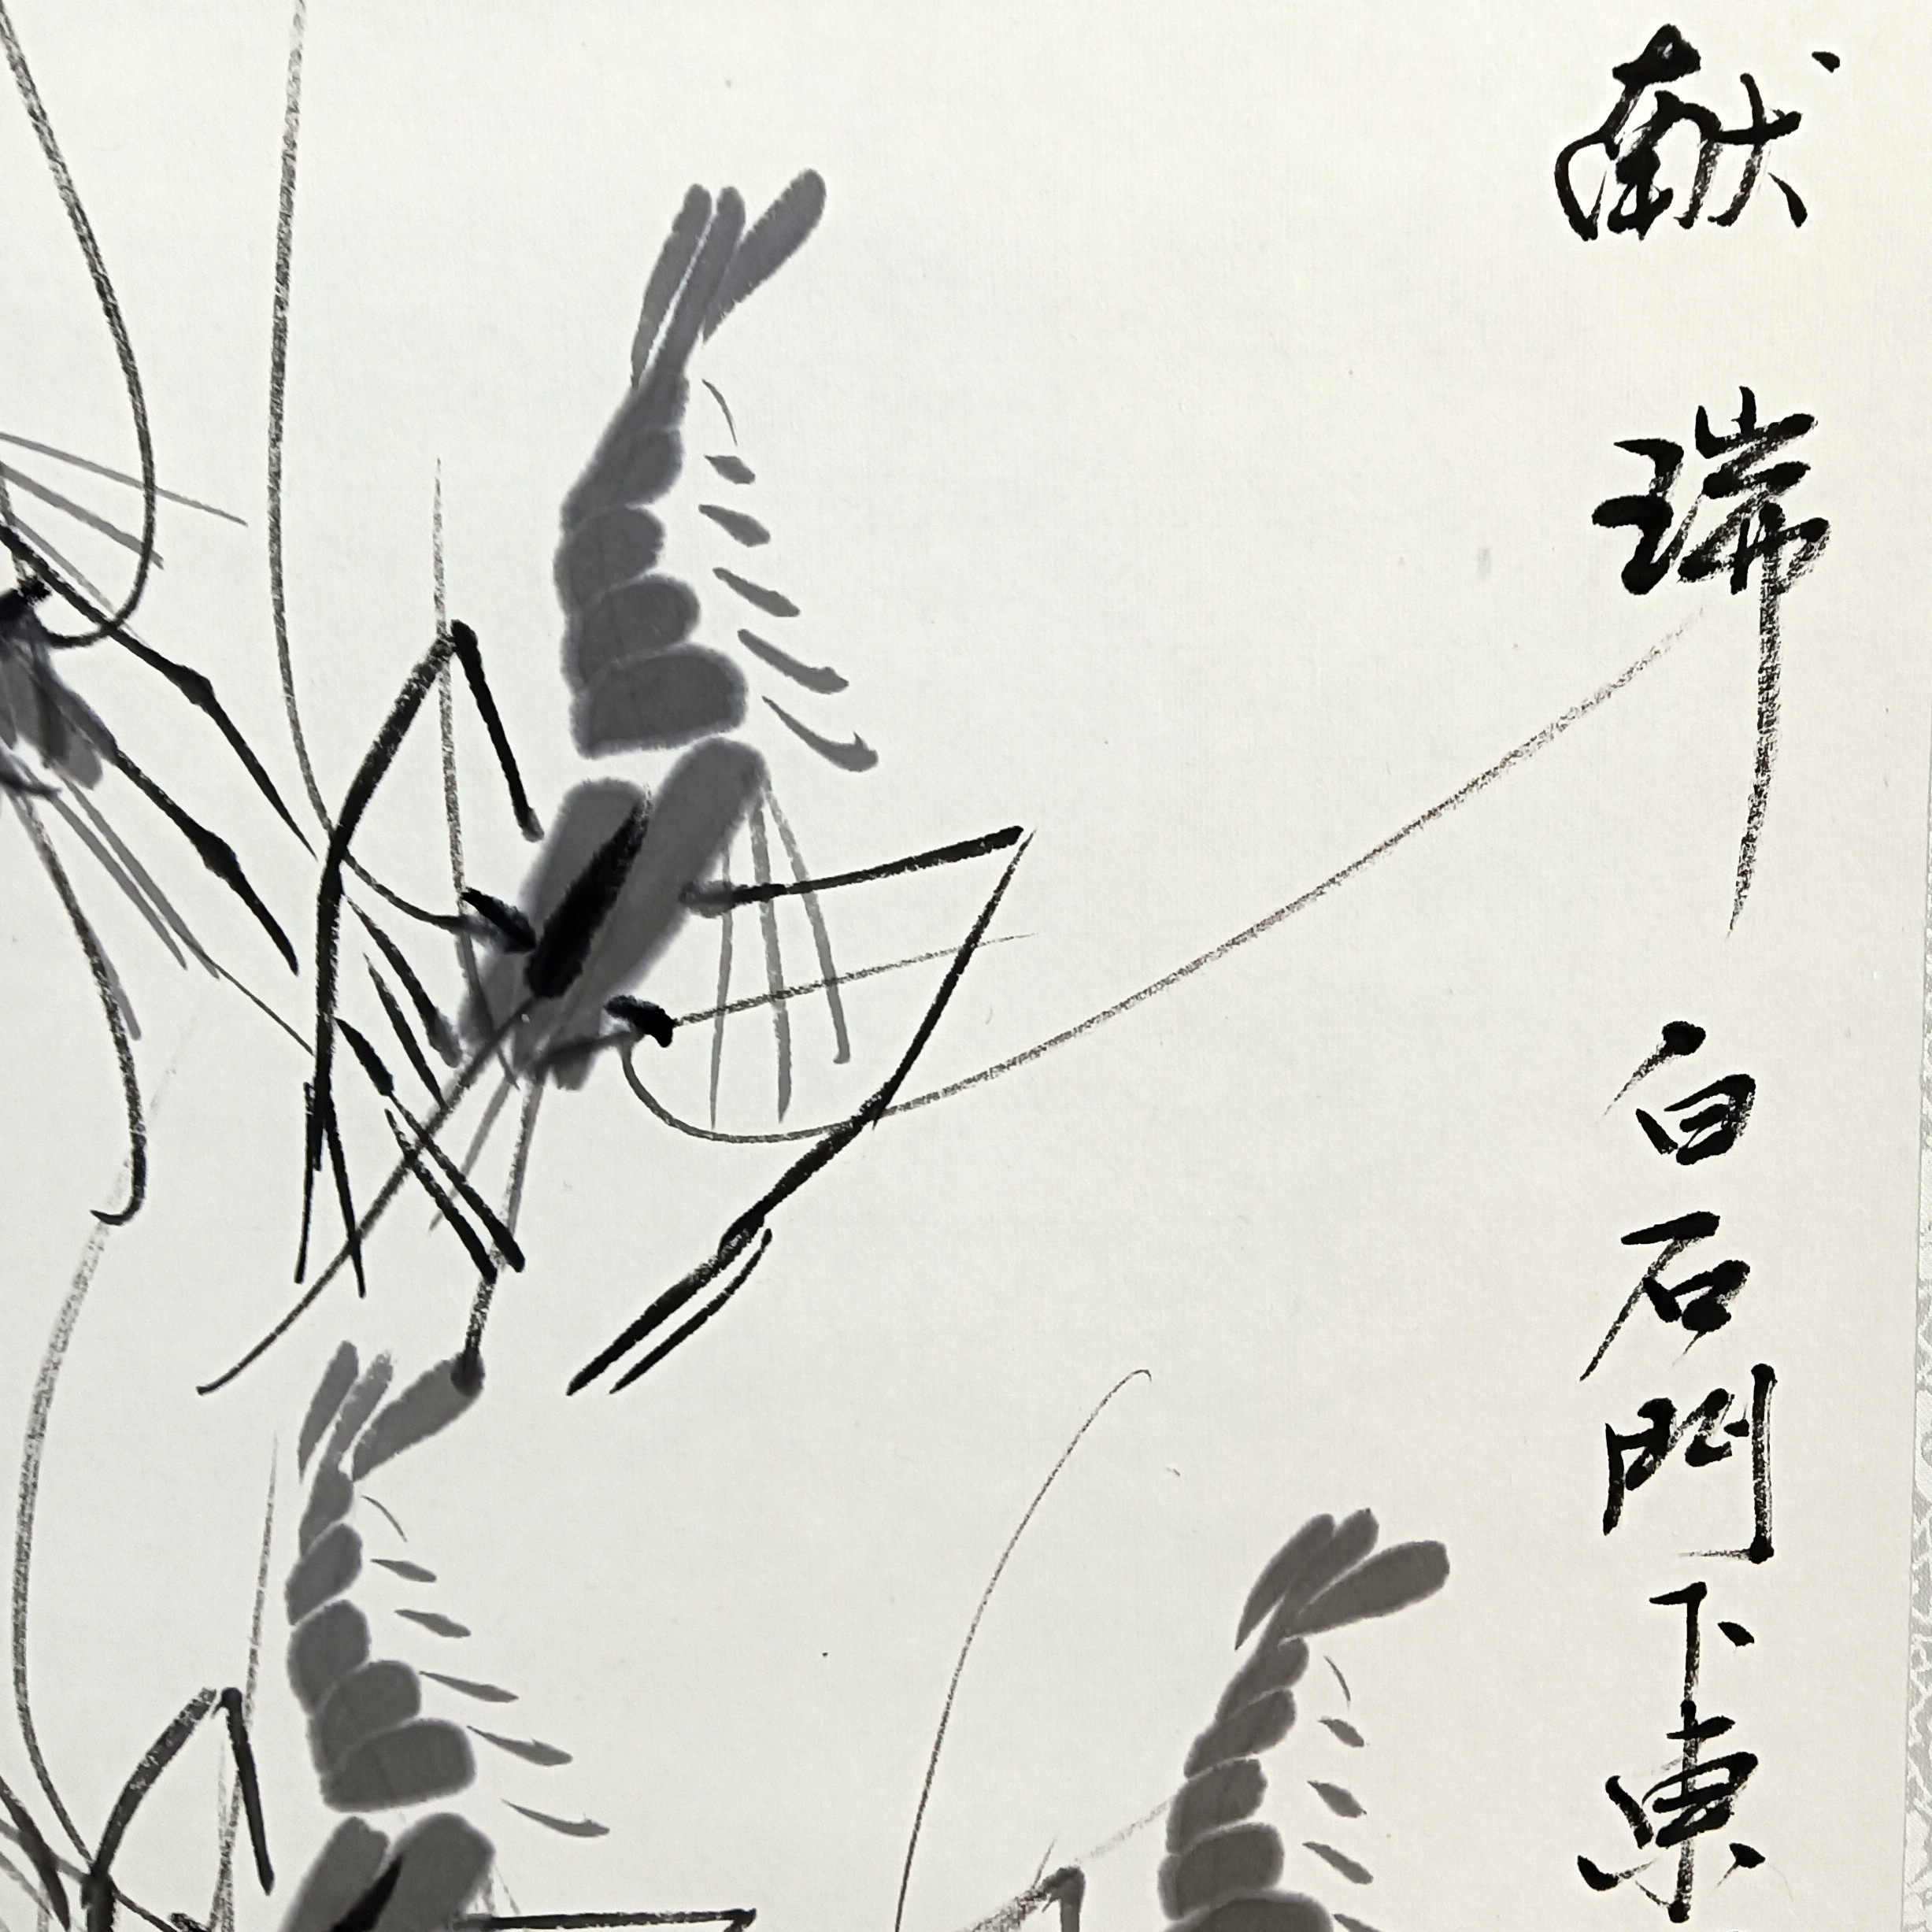 献瑞 白石門下東